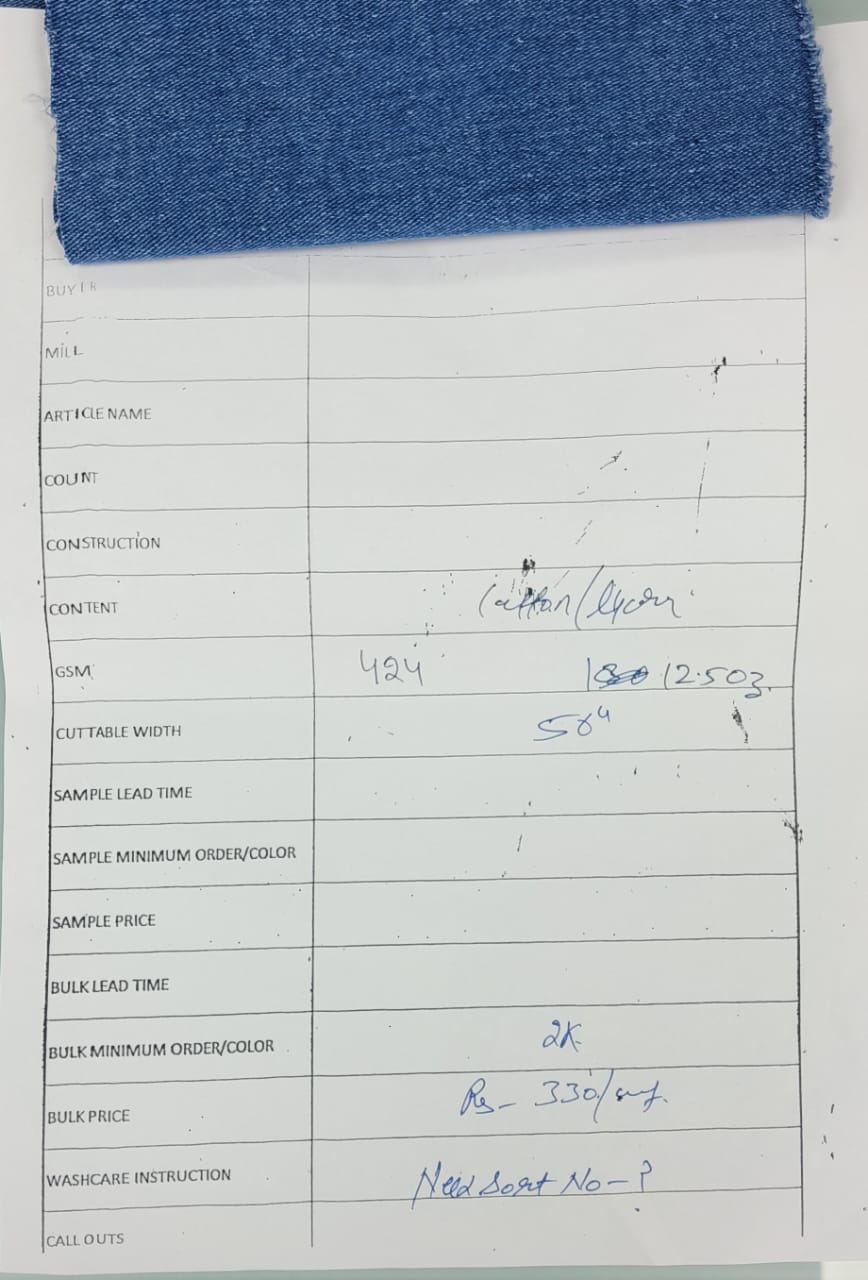 BUYER
MILL
ARTICLE NAME
COUNT
CONSTRUCTION
CONTENT Cotton/lycra
GSM 424 12.5oz
CUTTABLE WIDTH
SAMPLE LEAD TIME
SAMPLE MINIMUM ORDER/COLOR
SAMPLE PRICE
BULK LEAD TIME
BULK MINIMUM ORDER/COLOR 2K
BULK PRICE Rs- 330/
WASHCARE INSTRUCTION Need Sort No-?
CALL OUTS